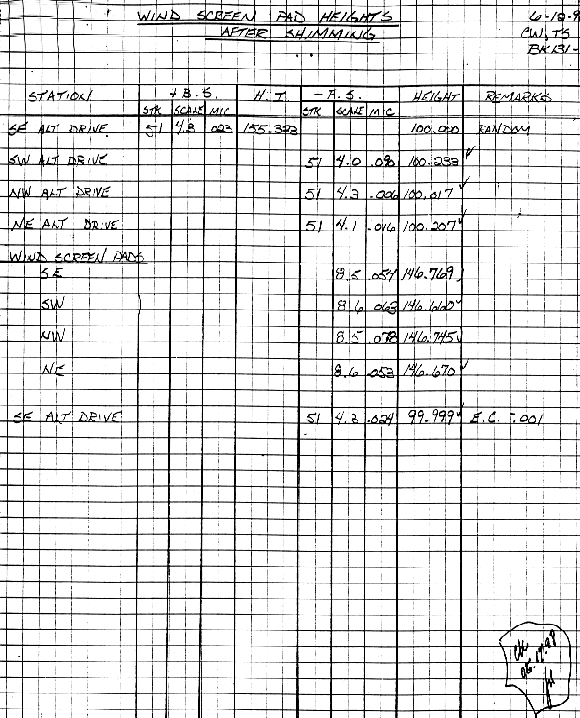 WIND SCREEN PAD HEIGHTS 6-18-9
AFTER SHIMMING CW, TS
BK131-
STATION + B.S. H.I. - F.S. HEIGHT REMARKS
STK SCALE MIC STK SCALE MIC
SE ALT DRIVE 51 4.3 .023 155.323 100.000 RANDOM
SW ALT DRIVE 51 4.0 .090 100.233 ✓
NW ALT DRIVE 51 4.3 .006 100.017 ✓
NE ALT DRIVE 51 4.1 .016 100.207 ✓
WIND SCREEN PADS
SE 8.5 .054 146.769
SW 8.6 .063 146.660 ✓
NW 8.5 .078 146.745 ✓
NE 8.6 .053 146.670 ✓
SE ALT DRIVE 51 4.3 .024 99.999 ✓ E.C. -.001